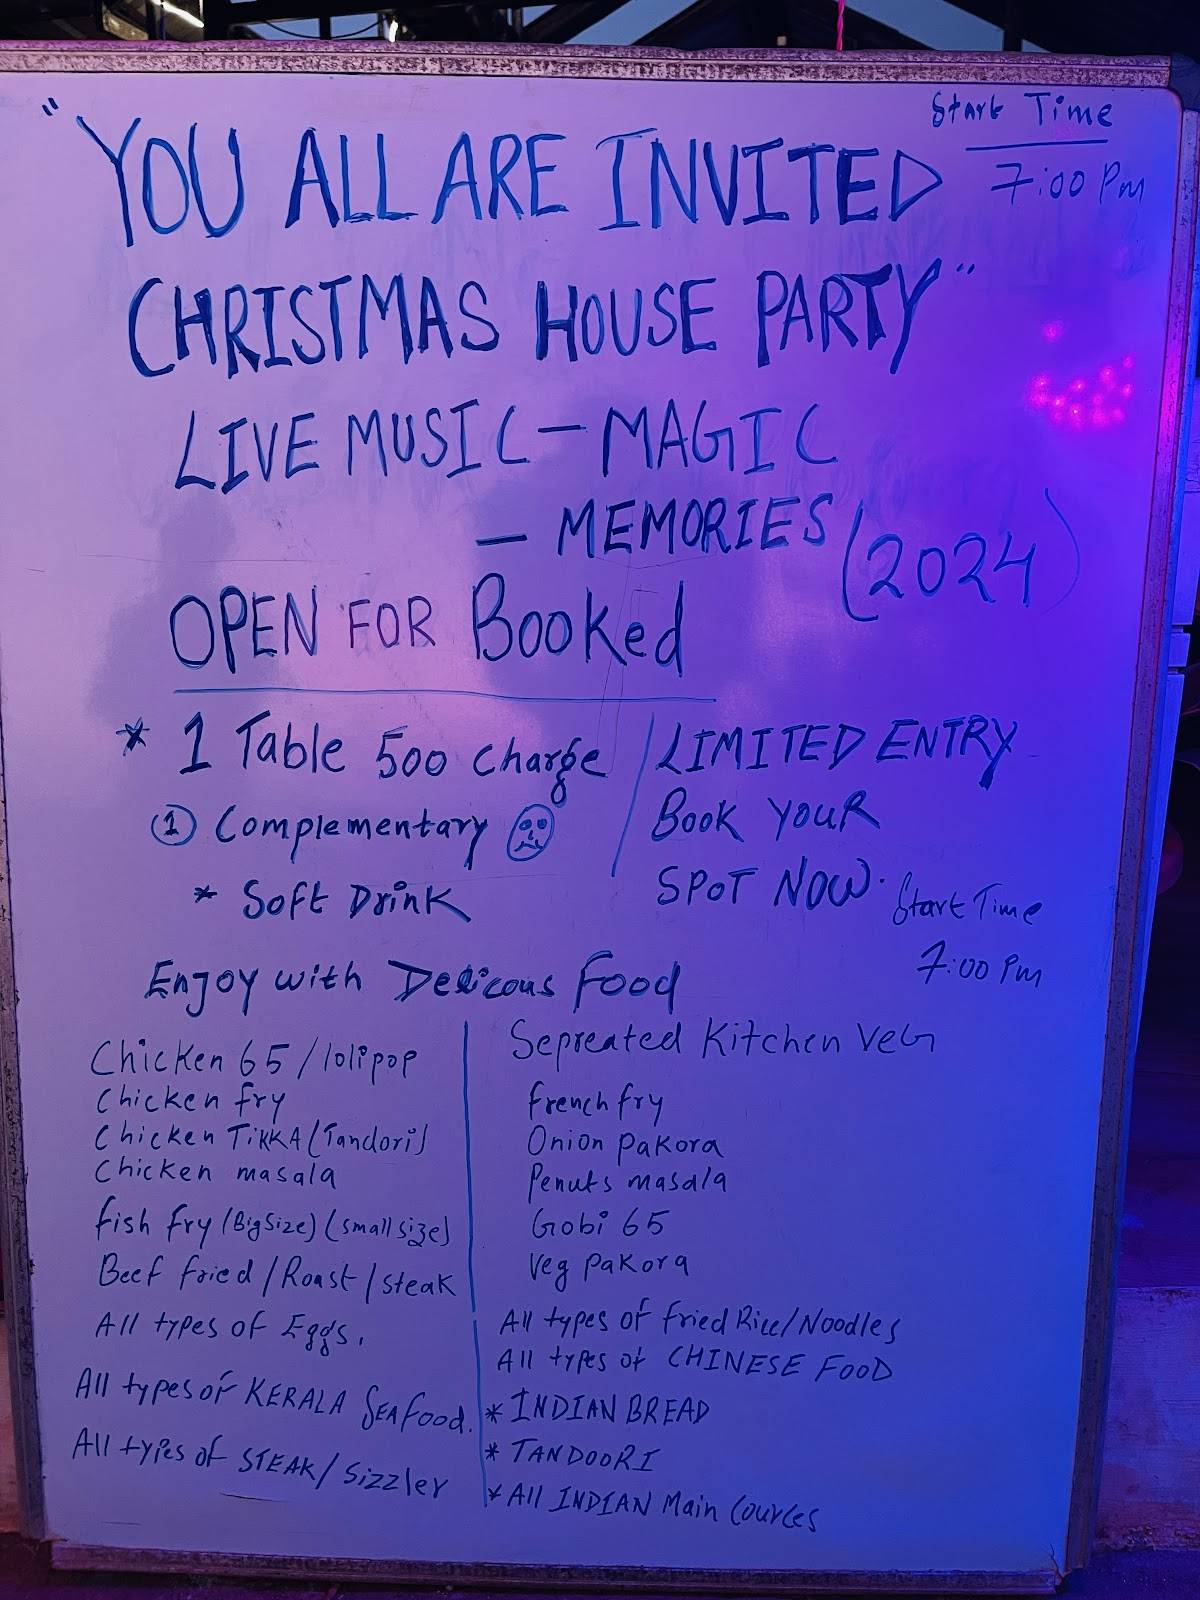 Start Time
7:00 Pm
"YOU ALL ARE INVITED
CHRISTMAS HOUSE PARTY"
LIVE MUSIC – MAGIC
– MEMORIES (2024)
OPEN FOR Booked
* 1 Table 500 charge
① Complementary
* Soft Drink
LIMITED ENTRY
BOOK YOUR
SPOT NOW.
Start Time
7:00 Pm
Enjoy with Delicous Food
Chicken 65 / lolipop
Chicken fry
Chicken TIKKA (Tandori)
Chicken masala
fish fry (Big Size) (small size)
Beef fried / Roast / steak
All types of Eggs.
All types of KERALA SEAfood.
All types of STEAK / Sizzler
Sepreated Kitchen VeG
french fry
Onion pakora
Penuts masala
Gobi 65
Veg pakora
All types of fried Rice/Noodles
All types of CHINESE FOOD
* INDIAN BREAD
* TANDOORI
* All INDIAN Main Cources